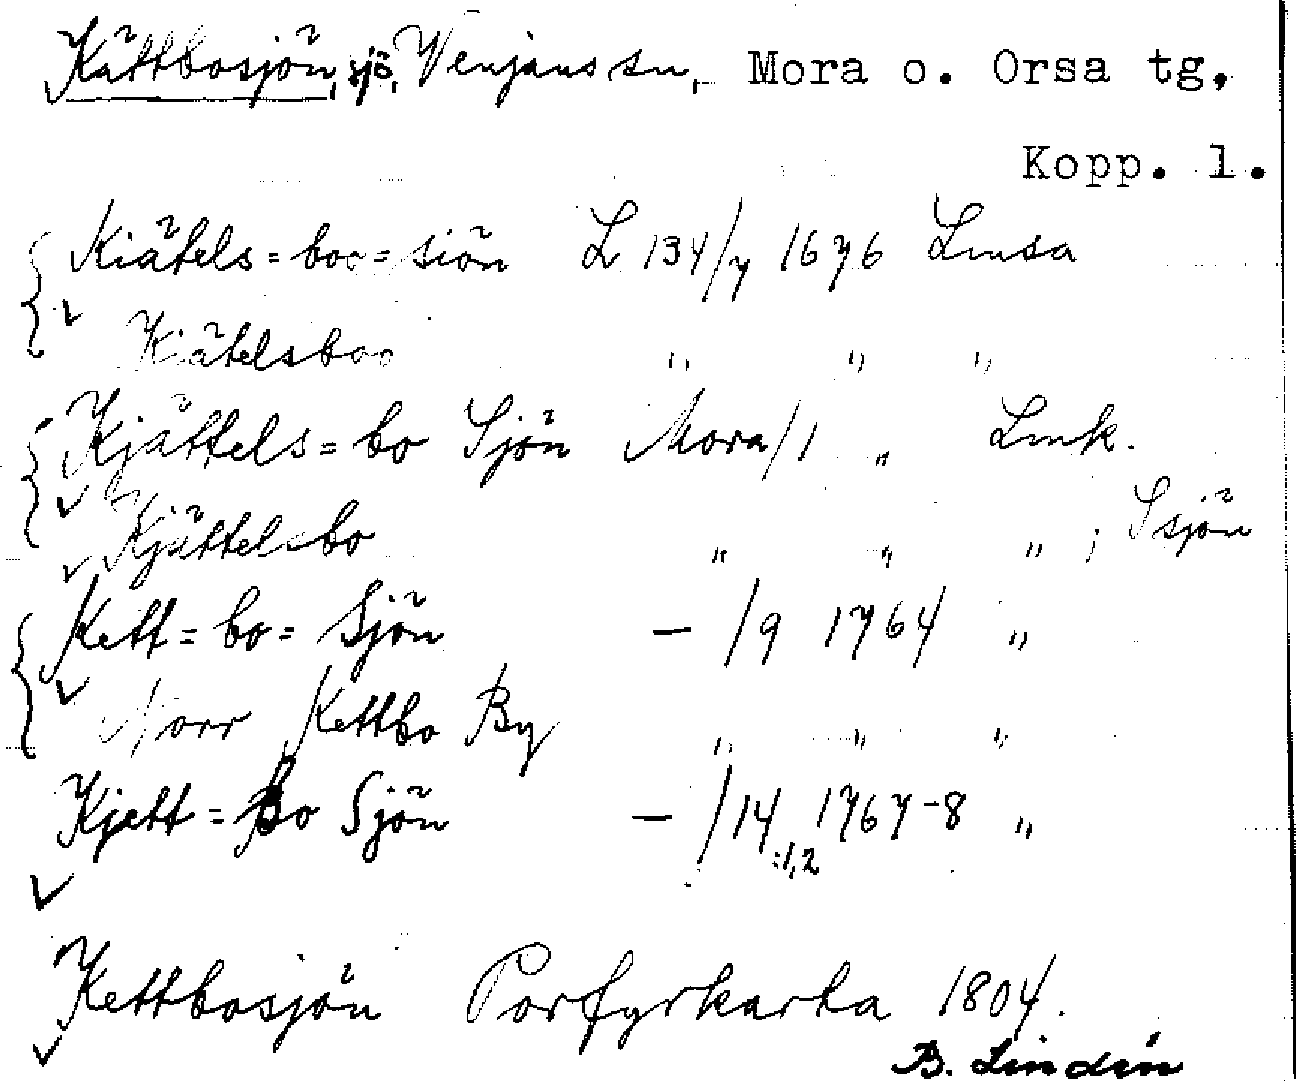 Kättbosjön, sjö, Venjans sn, Mora o. Orsa tg,
Kopp. l.
Kiätels=boo=siön L 134/7 1676 Lmsa
Kiätelsboo " " "
Kjättels=bo Sjön Mora/1 " Lmk.
Kjättelsbo " " " ; Ssjön
Kett=bo=Sjön — /9 1764 "
Norr Kettbo By " " "
Kjett=Bo Sjön — /14:1,2 1767-8 "
Kettbosjön Porfyrkarta 1804.
B. Lindén